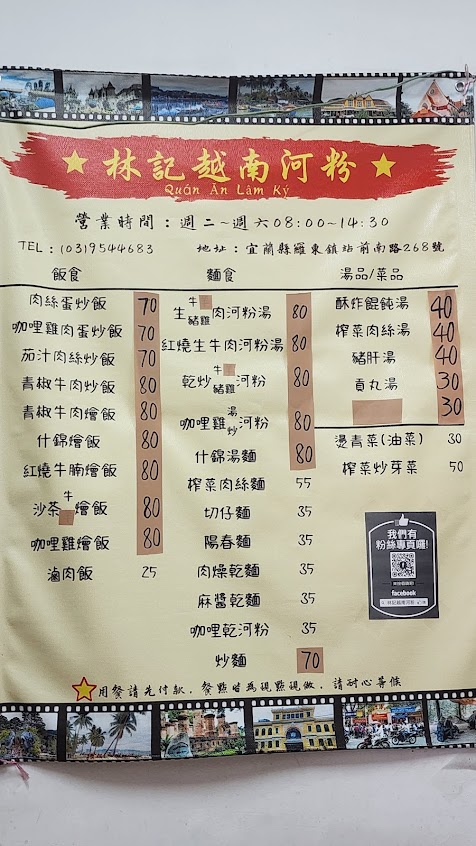 林記越南河粉
Quán Ăn Lâm Ký
營業時間：週二~週六08:00~14:30
TEL：(03)9544683 地址：宜蘭縣羅東鎮站前南路268號
飯食
肉絲蛋炒飯 70
咖哩雞肉蛋炒飯 70
茄汁肉絲炒飯 70
青椒牛肉炒飯 80
青椒牛肉燴飯 80
什錦燴飯 80
紅燒牛腩燴飯 80
沙茶牛燴飯 80
咖哩雞燴飯 80
滷肉飯 25
麵食
生牛豬雞肉河粉湯 80
紅燒生牛肉河粉湯 80
乾炒牛豬雞河粉 80
咖哩雞湯炒河粉 80
什錦湯麵 80
榨菜肉絲麵 55
切仔麵 35
陽春麵 35
肉燥乾麵 35
麻醬乾麵 35
咖哩乾河粉 35
炒麵 70
湯品/菜品
酥炸餛飩湯 40
榨菜肉絲湯 40
豬肝湯 40
貢丸湯 30
30
燙青菜(油菜) 30
榨菜炒芽菜 50
我們有
粉絲專頁囉!
facebook
林記越南河粉
用餐請先付款，餐點皆為現點現做，請耐心等候